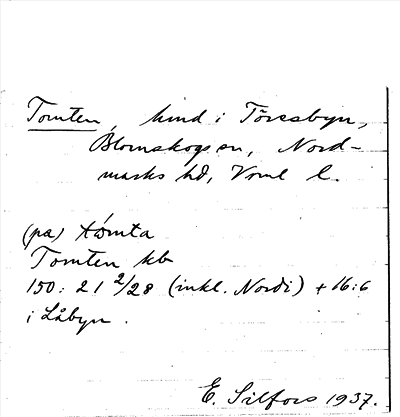 Tomten, hmd i Töresbyn,
Blomskogs sn, Nord-
marks hd, Vrml l.
(pa) tɷ̀mta
Tomten kb
150: 21 2/28 (inkl. Nordi) + 16:6
i Låbyn.
E. Silfors 1937.